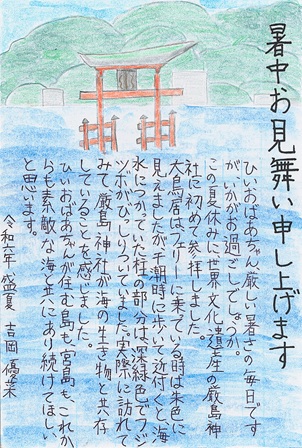 暑中お見舞い申し上げます
ひいおばあちゃん、厳しい暑さの毎日です
が、いかがお過ごしでしょうか。
この夏休みに世界文化遺産の厳島神
社に初めて参拝しました。
大鳥居はフェリーに乗っている時は朱色に
見えましたが、干潮時に歩いて近付くと、海
水につかっていた柱の部分は、深緑色でフジ
ツボがびっしりついていました。実際に訪れて
みて、厳島神社が海の生き物と共存
していることを感じました。
ひいおばあちゃんが住む島も、宮島も、これか
らも素敵な海と共にあり続けてほしい
と思います。
令和六年 盛夏 吉岡 優菜